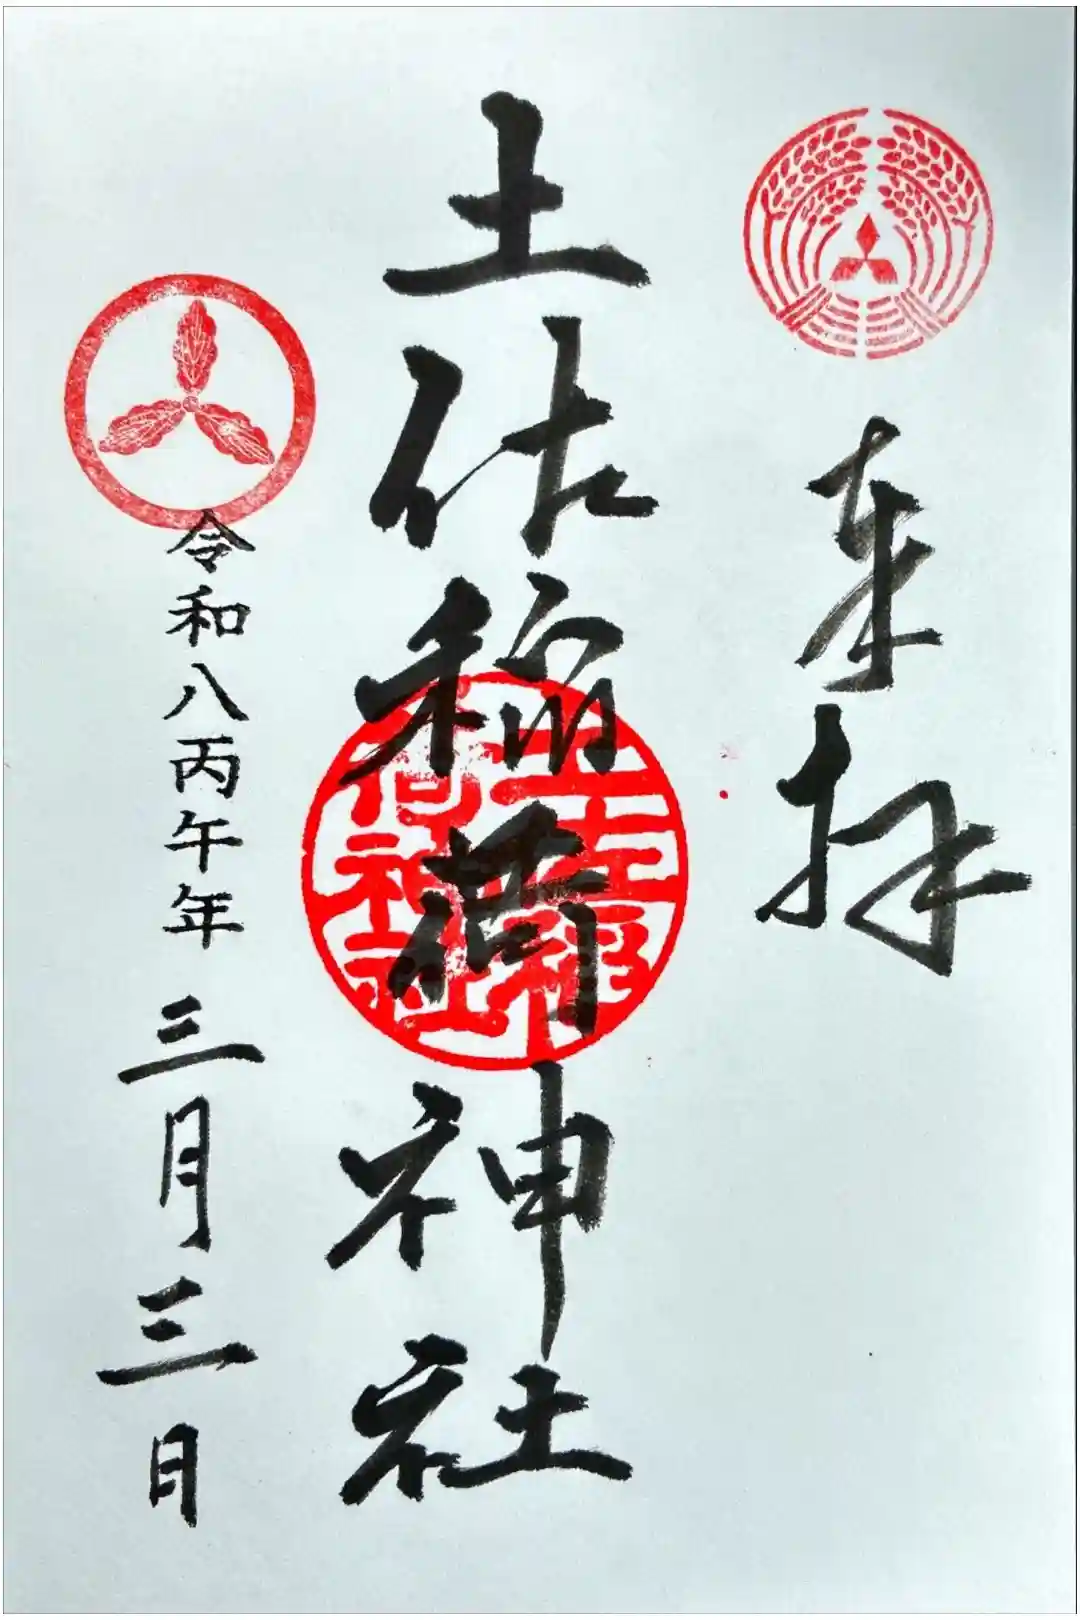 奉拝
土佐稲荷神社
土佐稲荷神社
令和八丙午年 三月三日